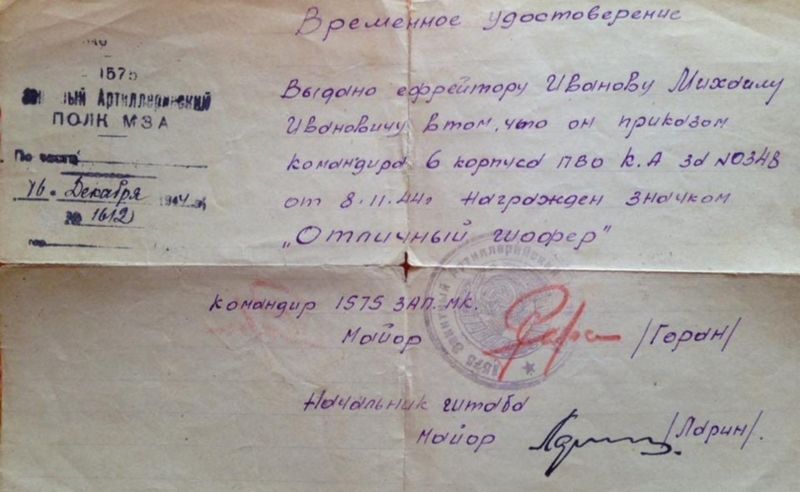 Временное удостоверение
1575
Зенитный Артиллерийский
ПОЛК МЗА
По части
16 Декабря 1944 г.
№ 1612
Выдано ефрейтору Иванову Михаилу
Ивановичу в том, что он приказом
командира 6 корпуса ПВО К.А за №0348
от 8.11.44г награжден значком
„Отличный шофер"
Командир 1575 ЗАП. МК.
Майор /Горан/
Начальник штаба
Майор /Ларин/.
1575 Зенитный Артиллерийский